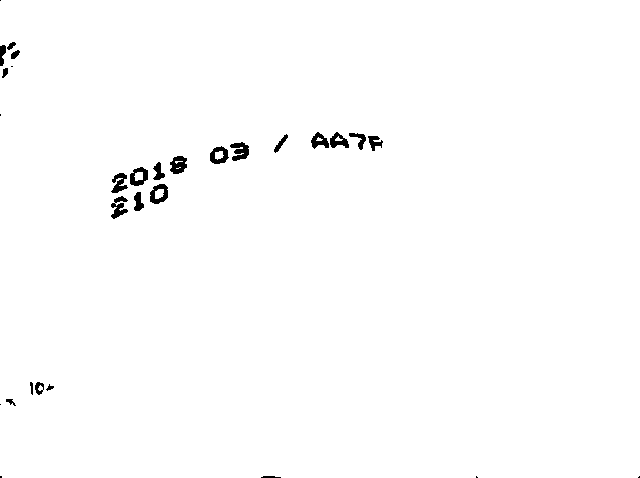 2018 03 / AA7F
210
10